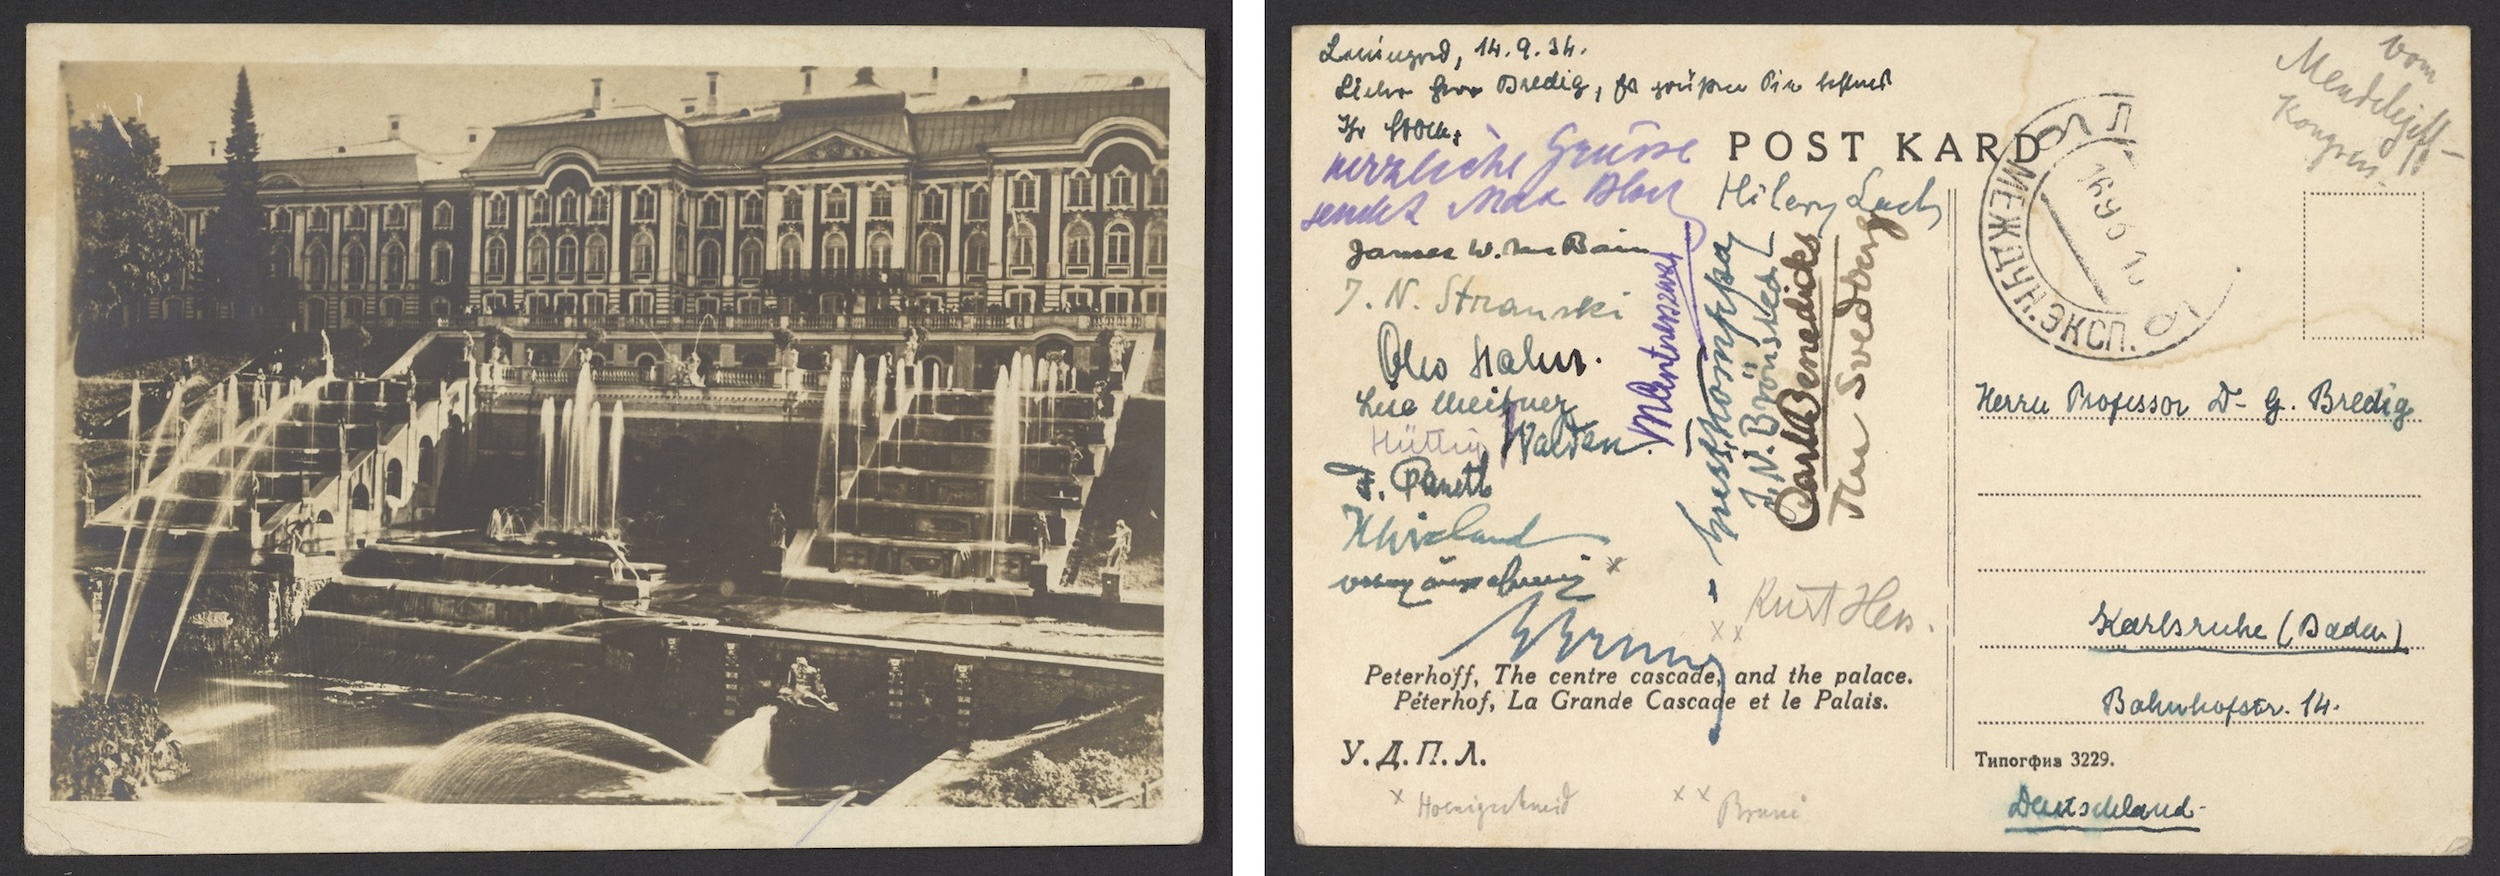 Leningrad, 14.9.34.
Lieber Herr Bredig, Es grüßen Sie bestens
Ihr
herzliche Grüsse
sendet Max
POST KARD
Vom
Mendelejeff-
Kongress.
Hilary Lachs
James W. McBain
I. N. Stranski
Otto Hahn.
Lise Meitner
Hüttig Walden.
F. Paneth
MCentnerszwer
J. N. Brönsted
Carl Benedicks
The Svedberg
Kurt Hess.
x
x x
МЕЖДУН. ЭКСП.
Herrn Professor Dr G. Bredig
Karlsruhe (Baden)
Bahnhofstr. 14.
Deutschland
Peterhoff, The centre cascade, and the palace.
Péterhof, La Grande Cascade et le Palais.
У.Д.П.Л.
Типогфия 3229.
x Hoenigschmid
x x Bruni